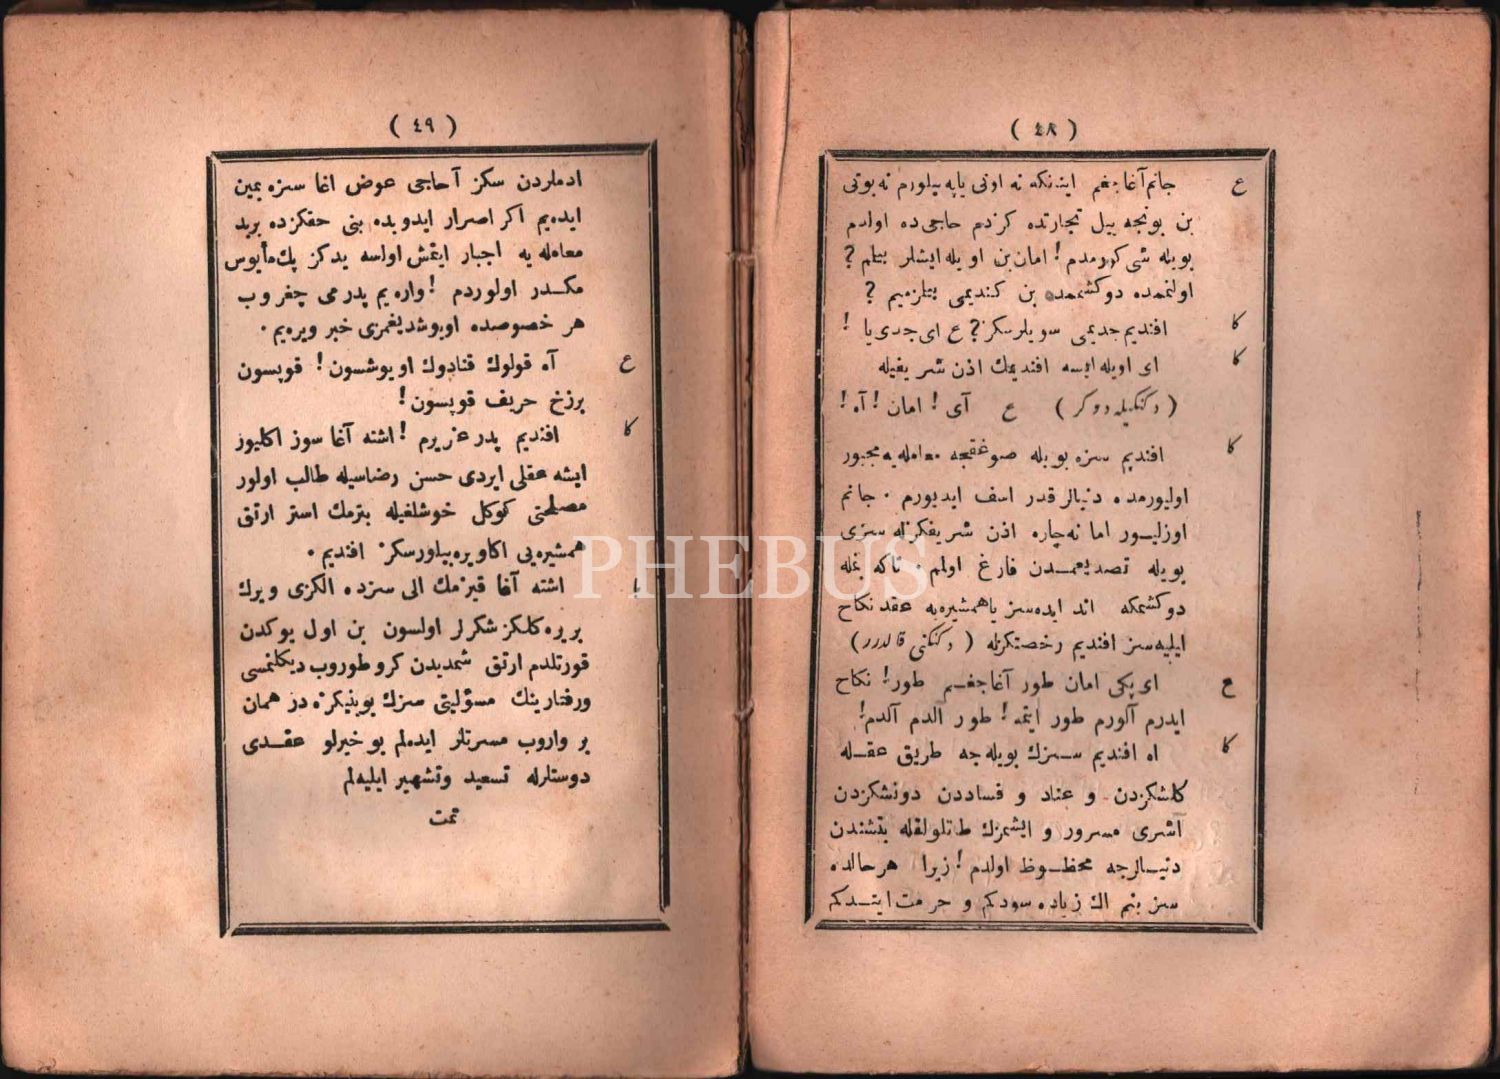 ( ٤٨ )
ع جانم آغاجغم ایتمكه نه اونی یاپه بیلورم نه بونی
بن بونجه ییل تجارتده كزدم حاجی ده اولدم
بویله شی كورمدم ! امان بن اویله ایشلر بتلم ؟
اولنمده دوكشمده بن كندیمی بتلزمیم ؟
كا افندیم جدیمی سویلرسكز ؟ ع ای جدی یا !
كا ای اویله ایسه افندیمك اذن شریفیله
( دكنكیله دوكر ) ع آی ! امان ! آه !
كا افندیم سزه بویله صوغقجه معامله یه مجبور
اولیورمده دنیالر قدر اسف ایدیورم . جانم
اوزلیور اما نه چاره اذن شریفكزله سزی
بویله تصدیعمدن فارغ اولمم . تاكه بنمله
دوكشمكه اند ایده سز یا همشیره یه عقد نكاح
ایلیه سز افندیم رخصتكزله ( دكنكی قالدرر )
ع ای پكی امان طور آغاجغم طور ! نكاح
ایدرم آلورم طور ایتمه ! طور الدم آلدم !
كا اه افندیم سزك بویله جه طریق عقله
كلشكزدن و عناد و فساددن دونشكزدن
آشری مسرور و ایشمزك طاتلولقله بتشندن
دنیالرجه محظوظ اولدم ! زیرا هر حالده
سز بنم اك زیاده سودكم و حرمت ایتدكم
( ٤٩ )
ادملردن سكز آ حاجی عوض اغا سزه یمین
ایده یم اكر اصرار ایدوبده بنی حقكزده بربد
معامله یه اجبار ایتمش اولسه یدكز پك مأیوس
مكدر اولوردم ! واره یم پدرمی چغروب
هر خصوصده اویوشدیغمزی خبر ویره یم .
ع آه قولوك قنادوك اویوشسون ! قوپسون
برزخ حریف قوپسون !
كا افندیم پدر عزیزم ! اشته آغا سوز اكلیور
ایشه عقلی ایردی حسن رضاسیله طالب اولور
مصلحتی كوكل خوشلغیله بتزمك استر ارتق
همشیره یی اكا ویره بیلورسكز افندیم .
با اشته آغا قیزمك الی سزده الكزی ویرك
بریره كلكز شكرلر اولسون بن اول یوكدن
قورتلدم ارتق شمدیدن كرو طوروب دیكلنمسی
ورفتارینك مسؤلیتی سزك بوینیكزه در همان
بر واروب مسرتلر ایده لم بو خیرلو عقدی
دوستلرله تسعید وتشهیر ایلیه لم
تمت
PHEBUS